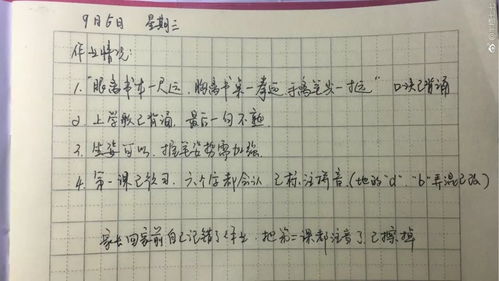 9月6日 星期三
作业情况:
1. "眼离书本一尺远,胸离书桌一拳远,手离笔尖一寸远" 口诀已背诵
2. 上学歌已背诵,最后一句不熟
3. 坐姿可以,握笔姿势需加强
4. 第一课已预习,六个字都会认,已标注拼音(地的"d"、"b"弄混已改)
家长回家前自己记错了作业,把第二课都注音了,已擦掉